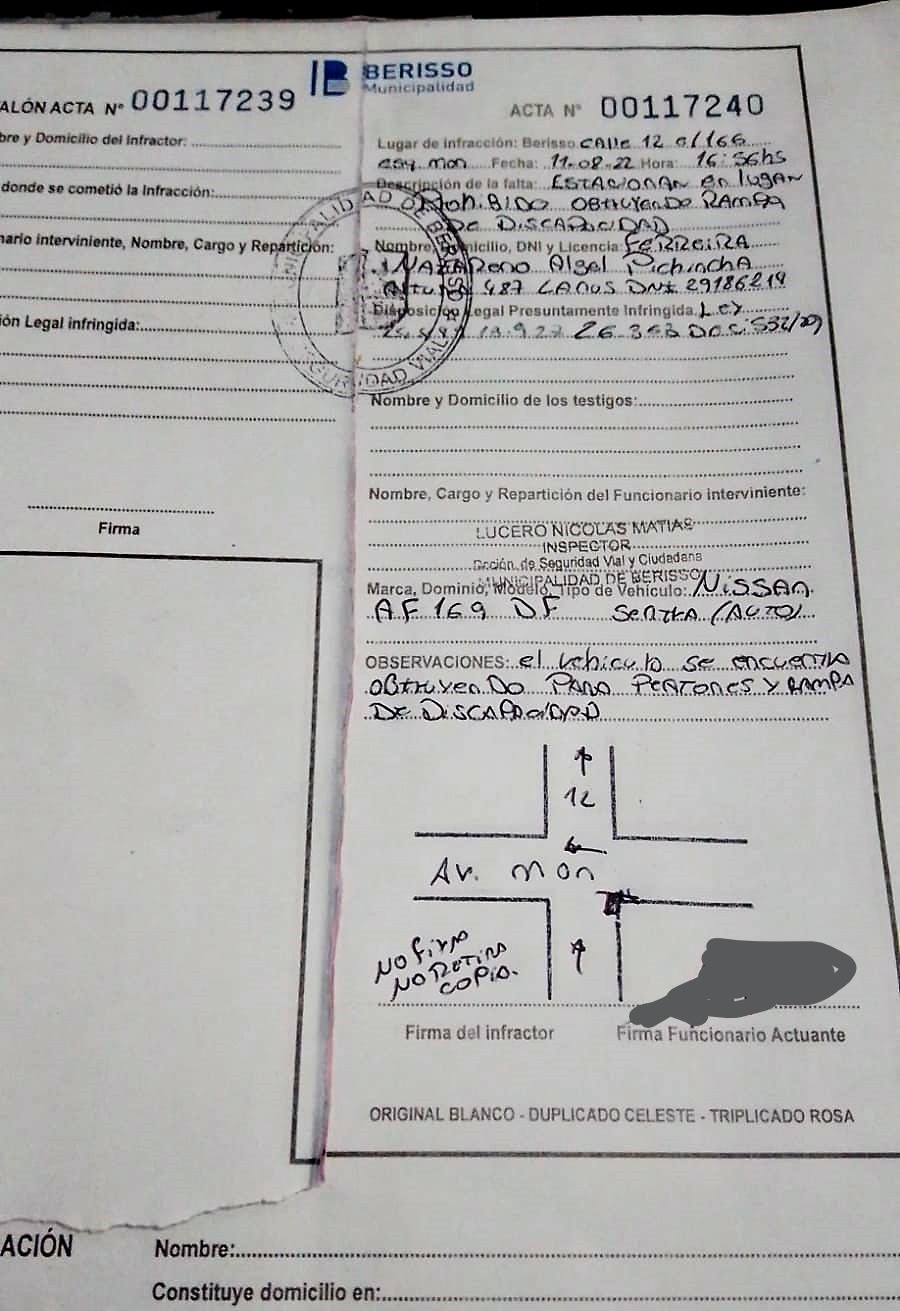 BERISSO
Municipalidad
ALÓN ACTA N° 00117239
bre y Domicilio del Infractor:
donde se cometió la Infracción:
nario interviniente, Nombre, Cargo y Repartición:
ión Legal infringida:
Firma
ACTA N° 00117240
Lugar de infracción: Berisso CALLE 12 e/166
esq. mon Fecha: 11-08-22 Hora: 16:56hs
Descripción de la falta: ESTACIONAR en LUGAR
PROHIBIDO OBTRUYENDO RAMPA
DE DISCAPACIDAD
Nombre, Domicilio, DNI y Licencia: FERREIRA
NAZARENO Pichincha
ALTURA 487 LANUS DNI 29186219
Disposición Legal Presuntamente Infringida: Ley
13.927 26.363 DEC 532/09
MUNICIPALIDAD DE BERISSO
SEGURIDAD VIAL
Nombre y Domicilio de los testigos:
Nombre, Cargo y Repartición del Funcionario interviniente:
LUCERO NICOLAS MATIAS
INSPECTOR
Dcción. de Seguridad Vial y Ciudadana
MUNICIPALIDAD DE BERISSO
Marca, Dominio, Modelo, Tipo de Vehículo: NISSAN
AF 169 DF SENTRA (AUTO)
OBSERVACIONES: el vehiculo se encuentra
OBTRUYENDO PARA PEATONES Y RAMPA
DE DISCAPACIDAD
12
Av. mon
NO FIRMA
NO RETIRA
COPIA.
Firma del infractor
Firma Funcionario Actuante
ORIGINAL BLANCO - DUPLICADO CELESTE - TRIPLICADO ROSA
ACIÓN
Nombre:
Constituye domicilio en: